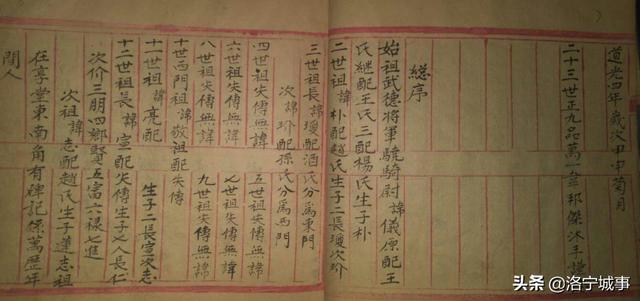 道光四年歲次甲申菊月
二十三世正九品萬韋邦傑沐手
總序
始祖武德將軍驍騎尉諱儀原配王
氏繼配王氏三配楊氏生子朴
二世祖諱朴配趙氏生子二長瓊次玠
三世祖長諱瓊配酒氏分為東門
次諱玠配孫氏分為西門
四世祖失傳無諱 五世祖失傳無諱
六世祖失傳無諱 七世祖失傳無諱
八世祖失傳無諱 九世祖失傳無諱
十世西門祖諱敖祖配失傳
十一世祖諱亮配 生子二長宮次志
十二世祖長諱宮配失傳生子七人長仁
次价三朋四鄉賢五富六祿七進
次祖諱志配趙氏生子達志祖
在享堂東南角有碑記保萬歷年
間人
头条 @洛宁城事